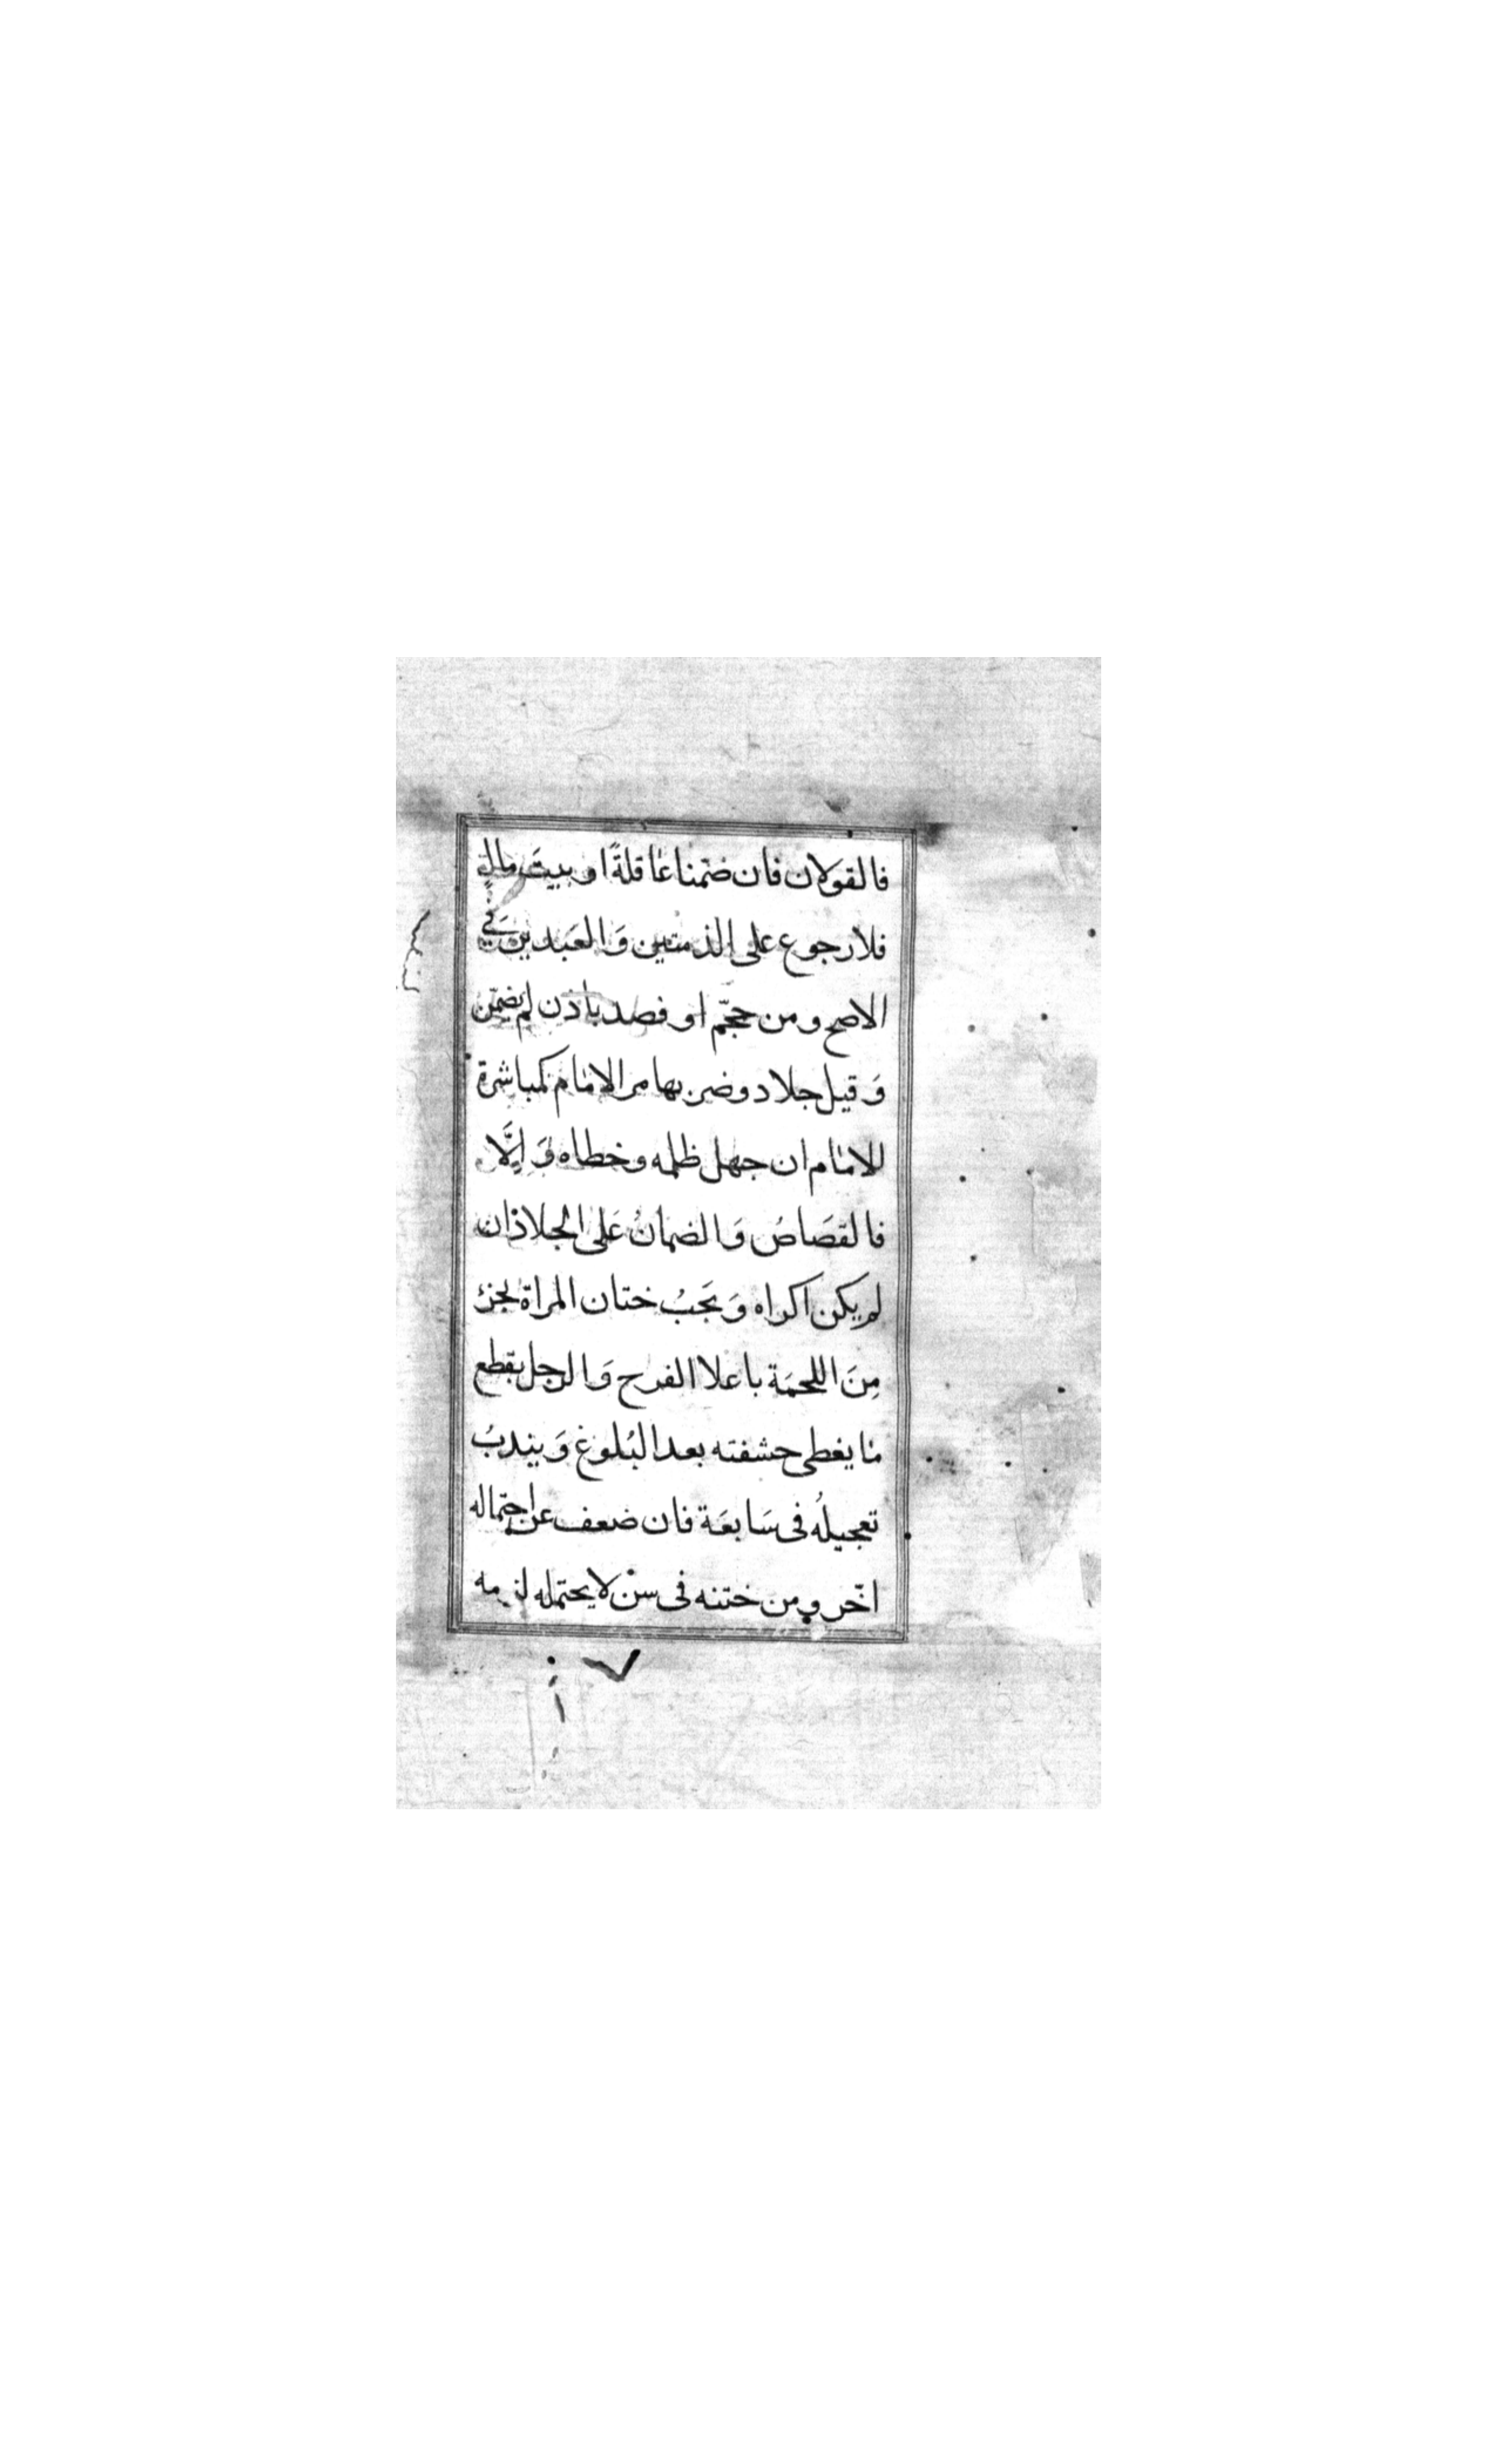 فالقولان فان ضمّنا عاقلةً او بيتَ مالٍ
فلا رجوع على الذمتين وَ العَبدين في
الاصح ومن حجّم او فصد باذن لم يضمّن
وَ قيل جلاد وضربها مر الامام كمباشرة
للامام ان جهل ظلمه وخطاه وَ اِلَّا
فالقصَاصُ وَ الضمانُ عَلى الجلاد ان
لم يكن اكراه وَ يَجبُ ختان المراة بجزء
مِنَ اللحمَة باعلا الفرح وَ الرجل بقطع
ما يغطى حشفته بعد البُلوغ وَ يندبُ
تعجيلُه فى سَابعَة فان ضعف عن احتماله
اخّر ومن ختنه فى سنّ لا يحتمله لزمه